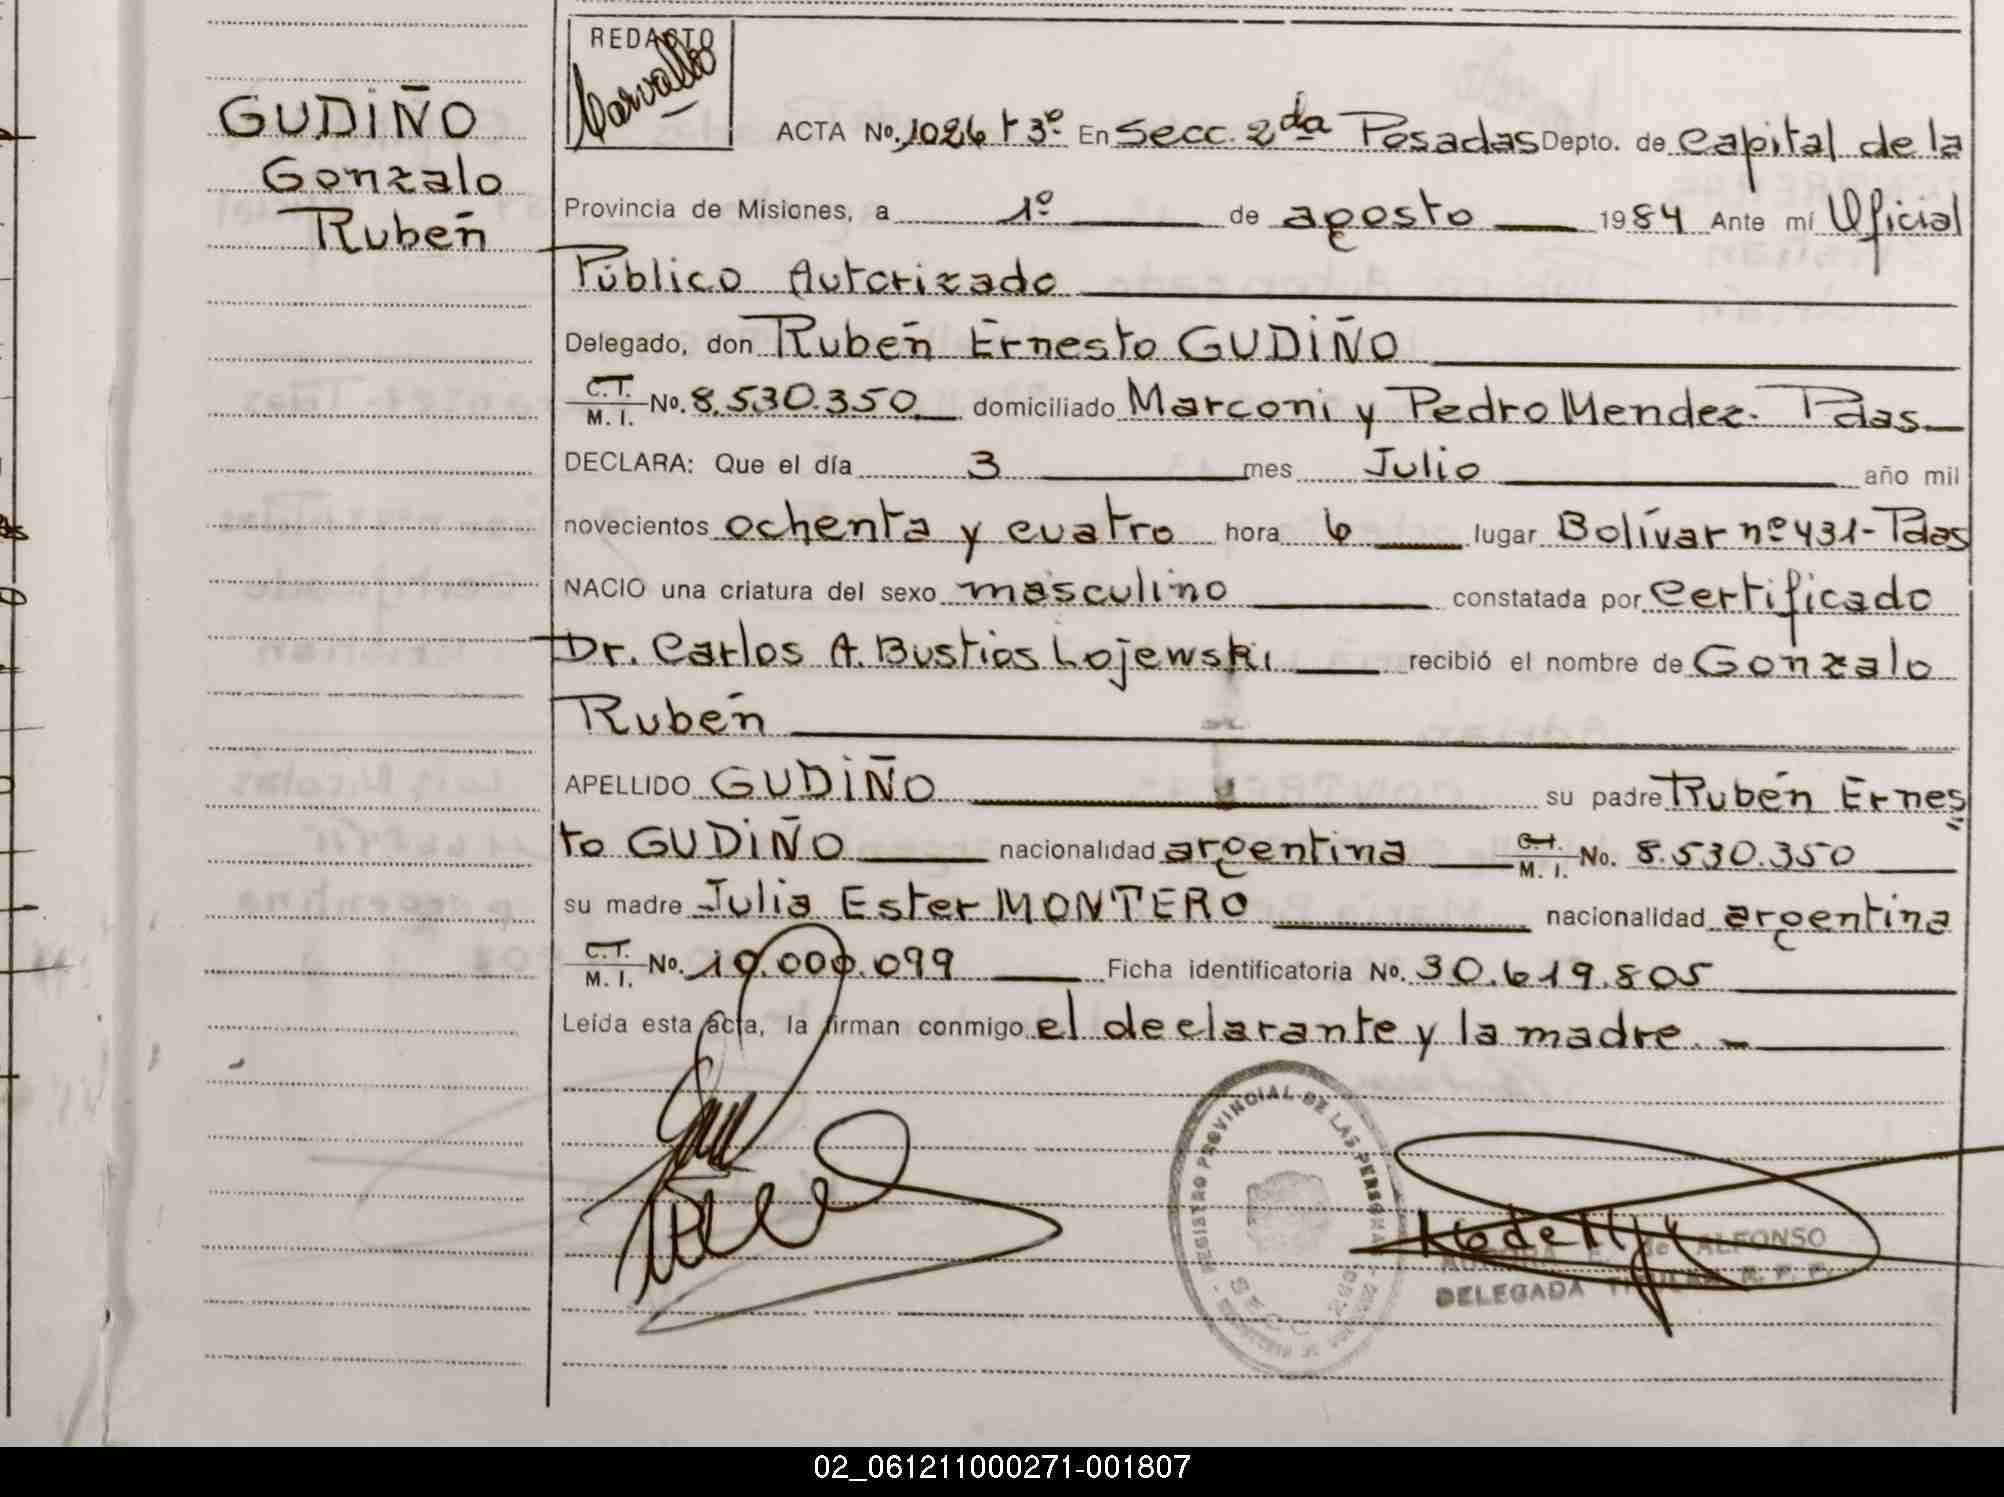 GUDIÑO
Gonzalo
Rubén
REDACTO
Carvallo
ACTA No. 1026 t 3º En Secc. 2da Posadas Depto. de Capital de la
Provincia de Misiones, a 1º de agosto 1984 Ante mí Oficial
Público Autorizado
Delegado, don Rubén Ernesto GUDIÑO
C.T. M. I. No. 8.530.350 domiciliado Marconi y Pedro Mendez. Pdas
DECLARA: Que el día 3 mes Julio año mil
novecientos ochenta y cuatro hora 6 lugar Bolívar nº 431-Pdas
NACIO una criatura del sexo masculino constatada por Certificado
Dr. Carlos A. Bustios Lojewski recibió el nombre de Gonzalo
Rubén
APELLIDO GUDIÑO su padre Rubén Ernes
to GUDIÑO nacionalidad argentina M. I. No. 8.530.350
su madre Julia Ester MONTERO nacionalidad argentina
C.T. M. I. No. 10.000.099 Ficha identificatoria No. 30.619.805
Leída esta acta, la firman conmigo el declarante y la madre.-
REGISTRO PROVINCIAL DE LAS PERSONAS
SECC
de ALFONSO
DELEGADA TITULAR R. P. P.
02_061211000271-001807